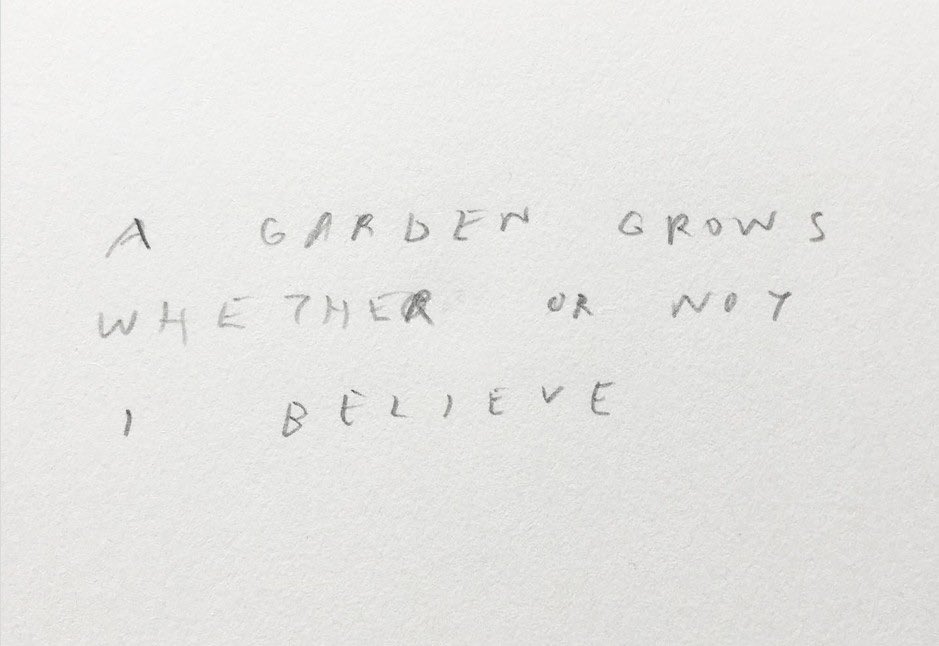 A GARDEN GROWS
WHETHER OR NOT
I BELIEVE